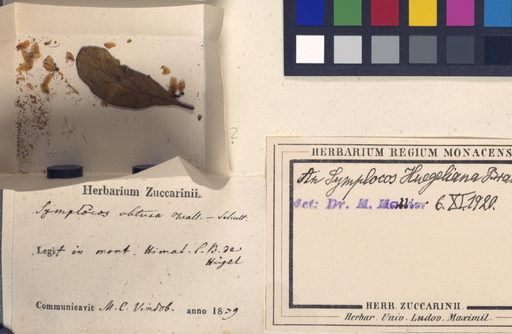 Herbarium Zuccarinii.
Symplocos obtusa Wall. —
Legit in mont. Himal. C. B. de
Hügel
Communicavit M. C. Vindob. anno 1839
HERBARIUM REGIUM MONACENS
An Symplocos Huegeliana Bra
det: Dr. M. 6.XI.1920.
HERB. ZUCCARINII
Herbar. Univ. Ludov. Maximil.